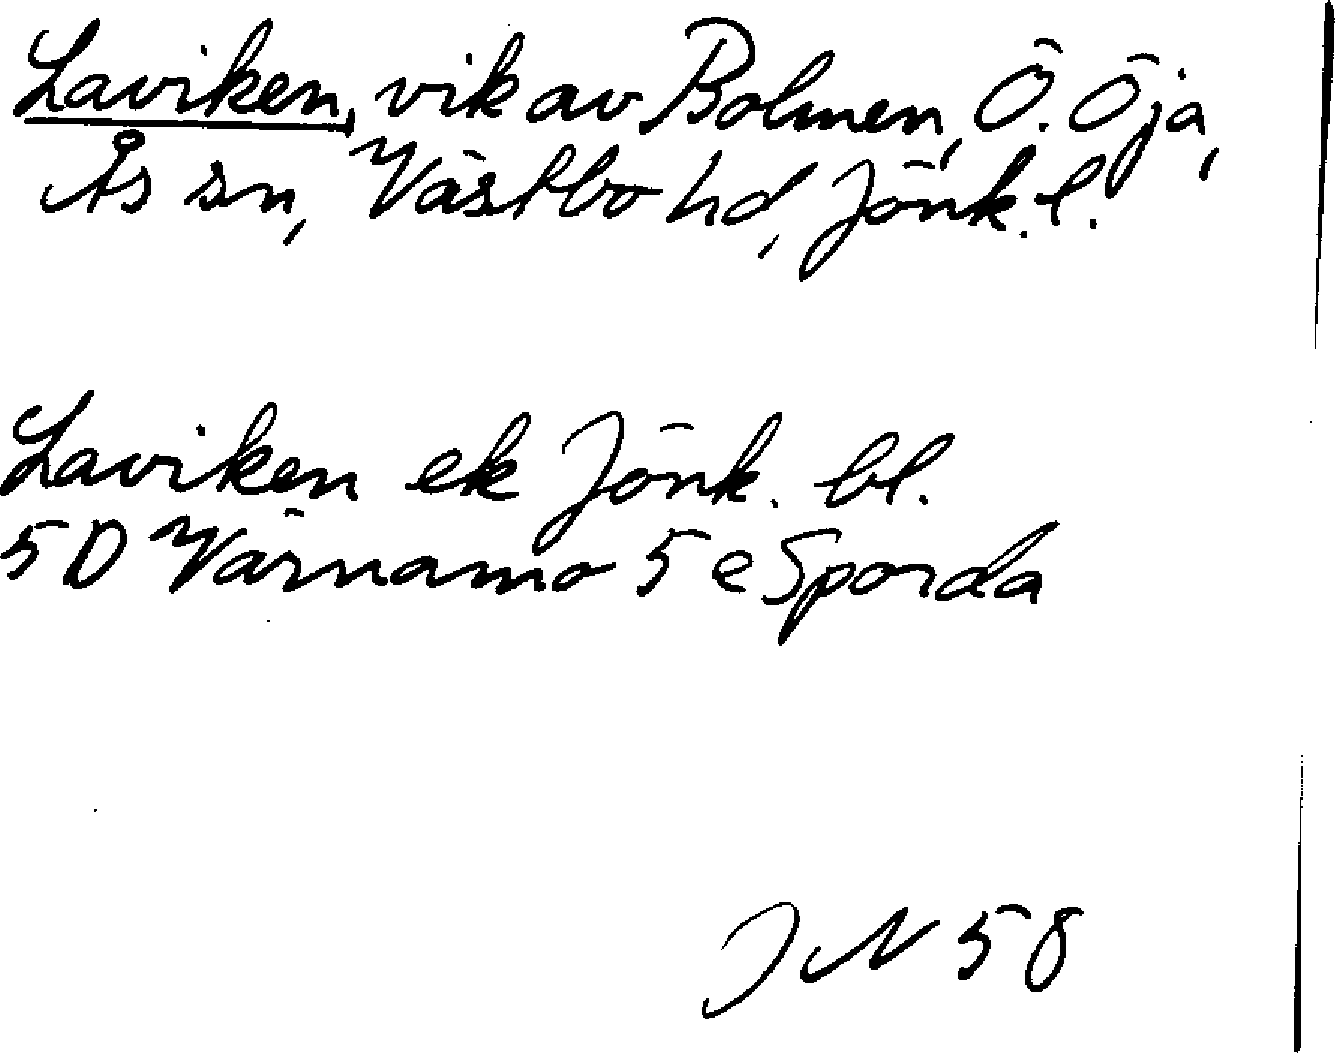 Laviken, vik av Bolmen, Ö. Öja,
Ås sn, Västbo hd, Jönk. l.
Laviken ek Jönk. bl.
5D Värnamo 5 e Sporda
JN 58